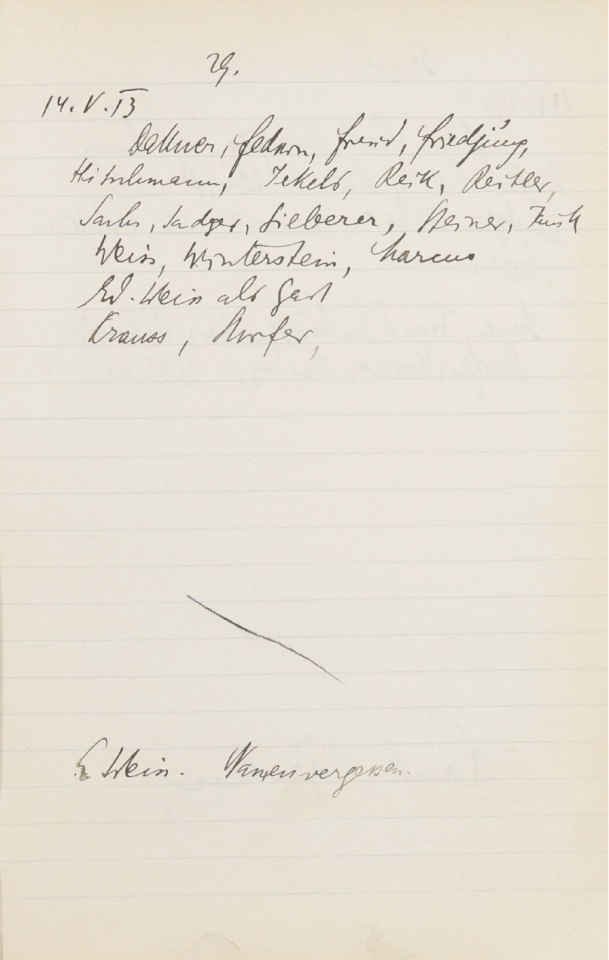 29.
14.V.13
Dattner, Federn, Freud, Friedjung,
Hitschmann, Jekels, Reik, Reitler,
Sachs, Sadger, Sieberer, Steiner,
Weiss, Winterstein, Marcus
Ed. Weiss als Gast
Krauss, Storfer,
E Weiss. Namenvergessen.